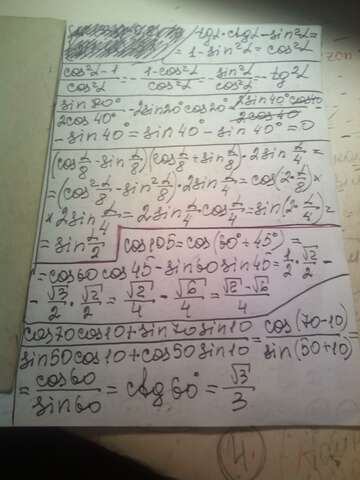 tgα·ctgα-sin²α=
=1-sin²α=cos²α
(cos²α-1)/cos²α = -(1-cos²α)/cos²α = -sin²α/cos²α = -tg²α
sin80°/2cos40° - 2sin20°cos20° = 2sin40°cos40/2cos40 -
-sin40° = sin40° - sin40° = 0
(cos α/8 - sin α/8)(cos α/8 + sin α/8)·2sin α/4 =
=(cos² α/8 - sin² α/8)·2sin α/4 = cos(2·α/8)×
×2sin α/4 = 2sin α/4·cos α/4 = sin(2·α/4)=
=sin α/2
cos105=cos(60°+45°)=
=cos60cos45-sin60sin45=1/2·√2/2-
-√3/2·√2/2=√2/4-√6/4=(√2-√6)/4
(cos70cos10+sin70sin10)/(sin50cos10+cos50sin10)=cos(70-10)/sin(50+10)=
=cos60/sin60=ctg60°=√3/3